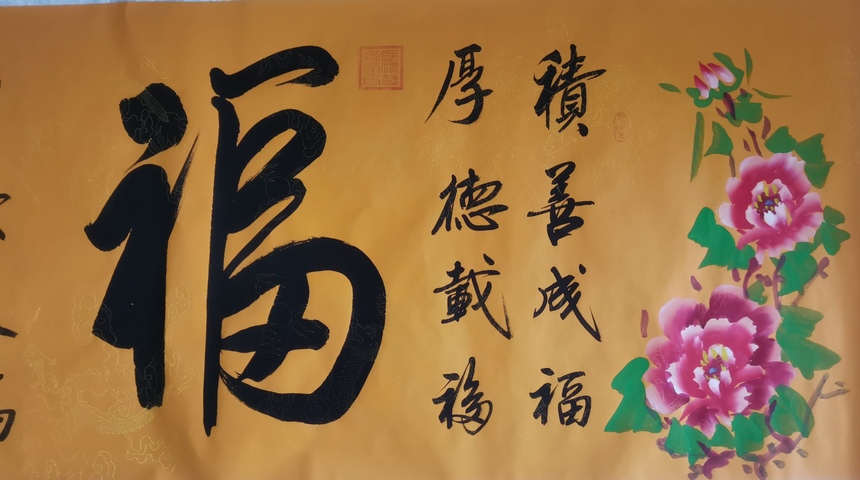 積善成福
厚德載福
福